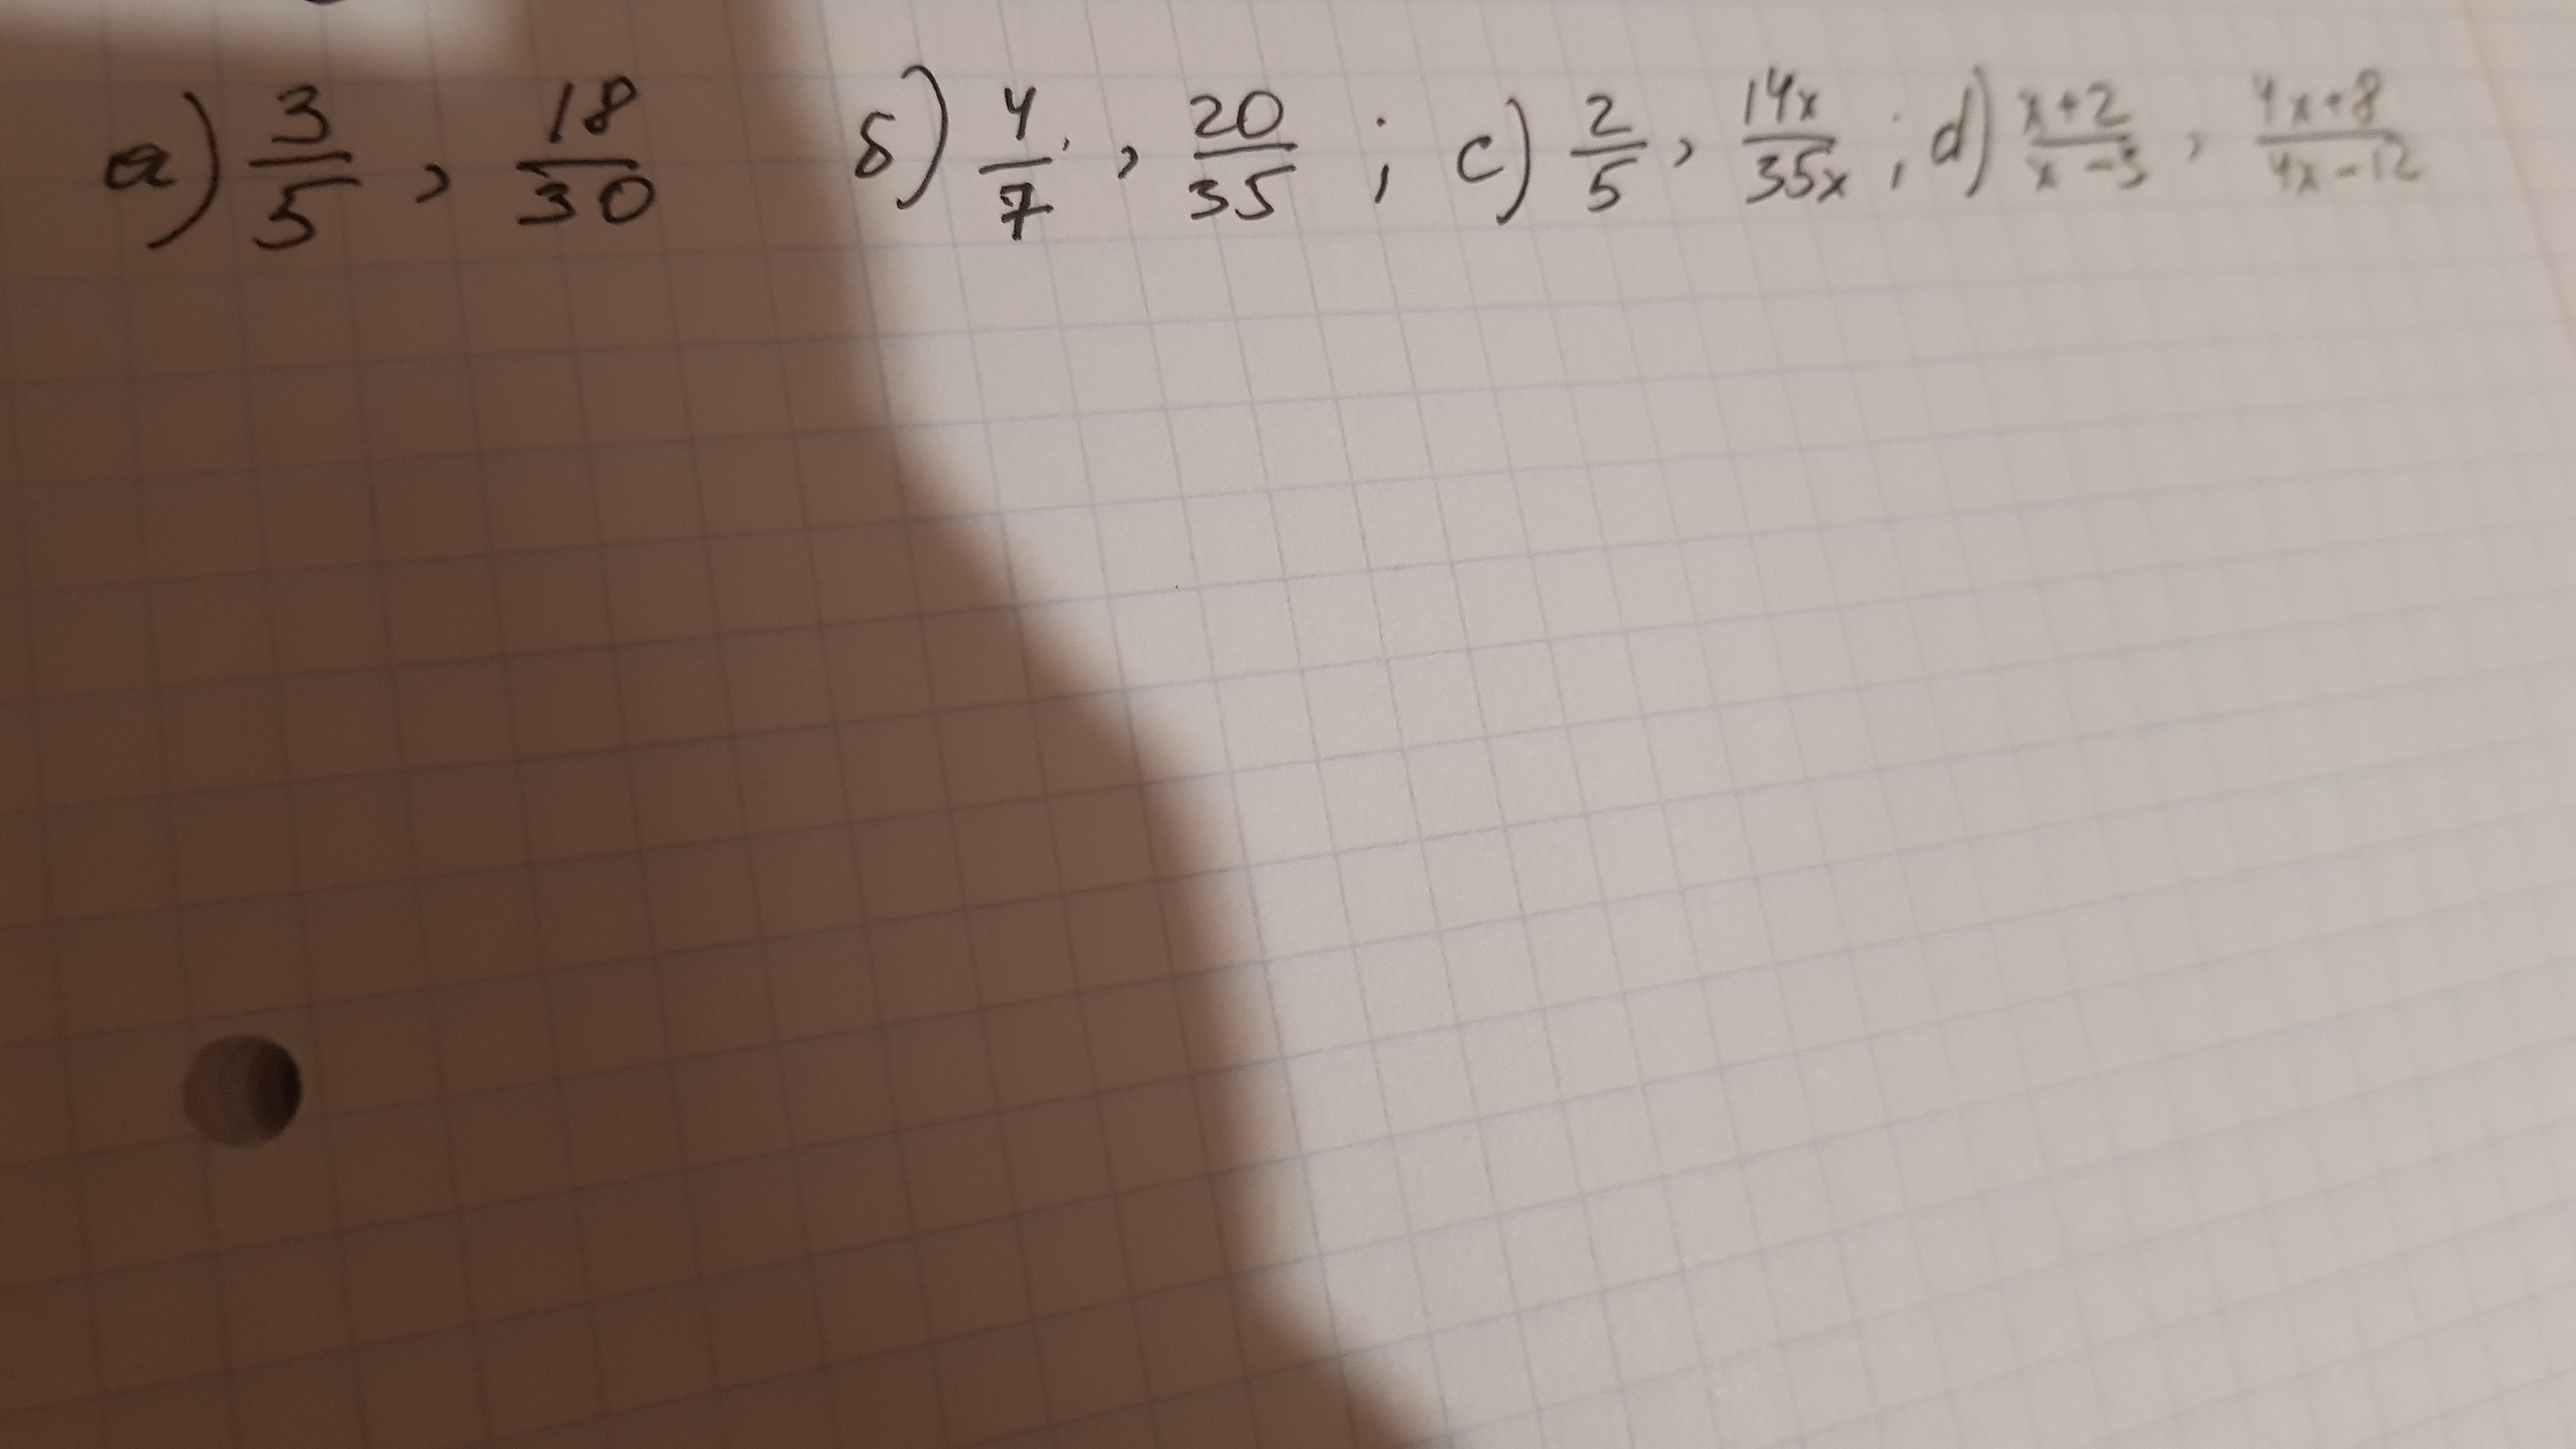 a) 3/5 , 18/30 б) 4/7 , 20/35 ; c) 2/5 , 14x/35x ; d) x+2/x-3 , 4x+8/4x-12